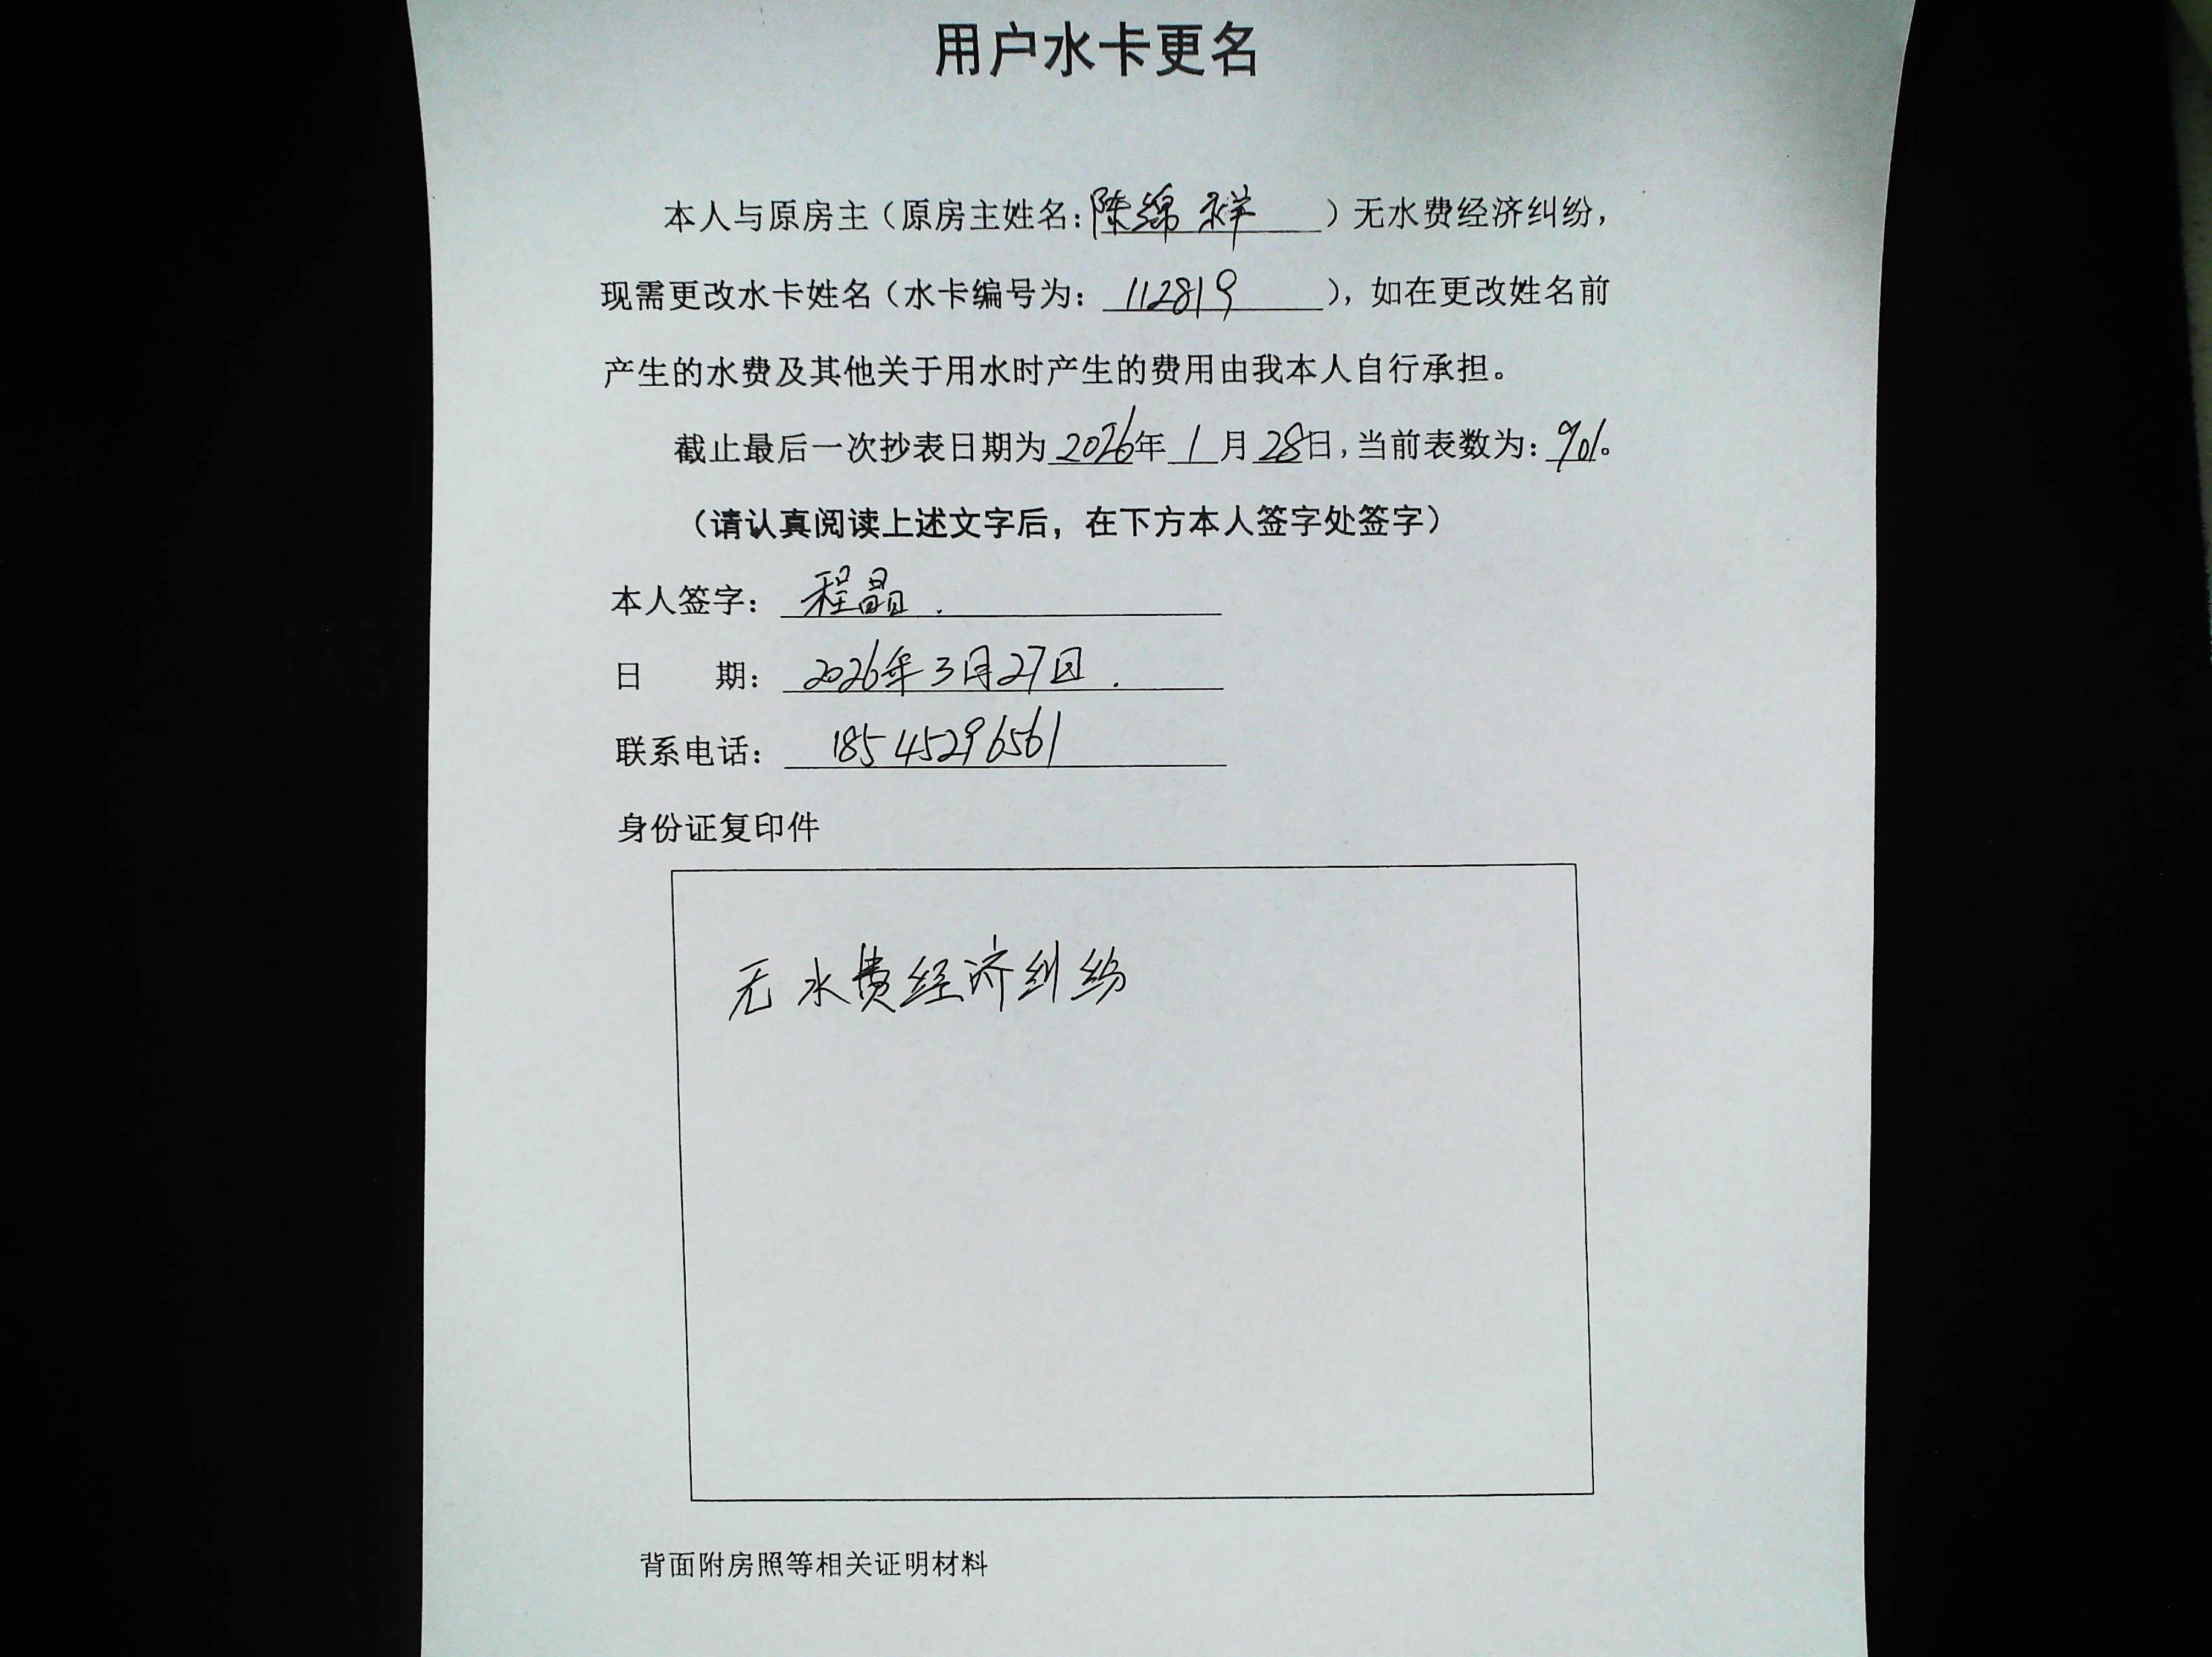 用户水卡更名
本人与原房主（原房主姓名：陈绵祥）无水费经济纠纷，
现需更改水卡姓名（水卡编号为：112819），如在更改姓名前
产生的水费及其他关于用水时产生的费用由我本人自行承担。
截止最后一次抄表日期为2026年1月28日，当前表数为：901。
（请认真阅读上述文字后，在下方本人签字处签字）
本人签字：程晶.
日 期：2026年3月27日.
联系电话：18545296561
身份证复印件
无水费经济纠纷
背面附房照等相关证明材料